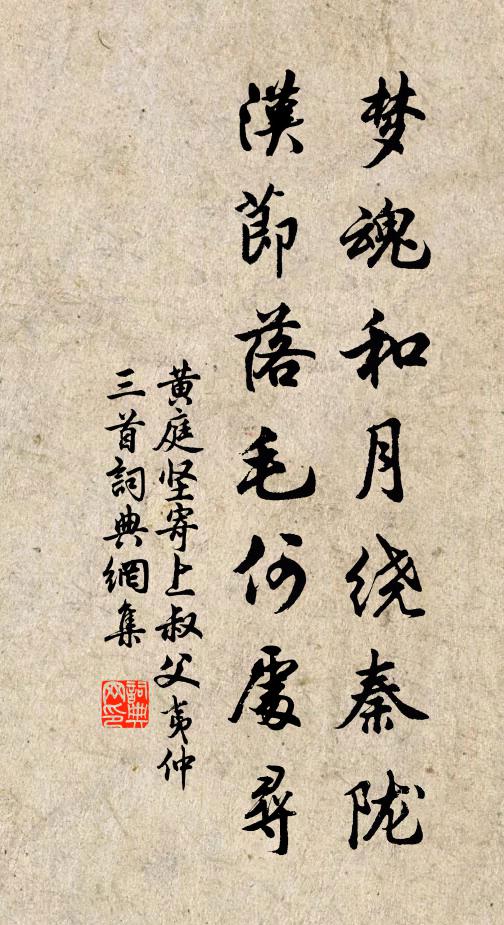 梦魂和月绕秦陇
漢節落毛何處尋
黄庭坚寄上叔父夷仲
三首詞典網集
詞典
网印